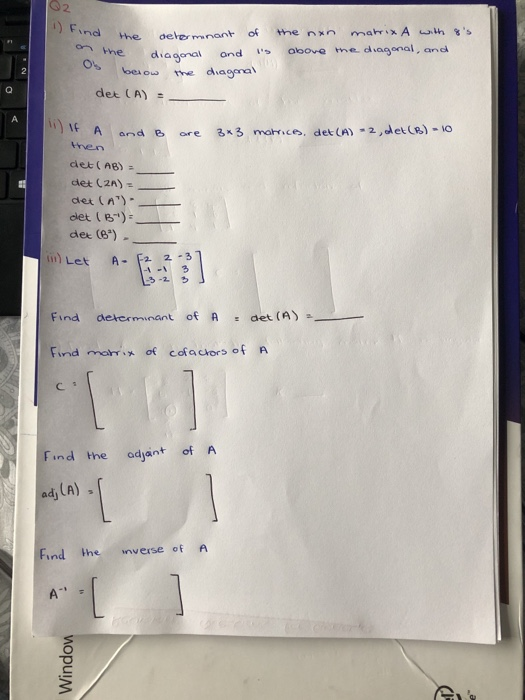 Q2
i) Find the determinant of the nxn matrix A with 8's
on the diagonal and 1's above the diagonal, and
0's below the diagonal
det (A) = ____
ii) If A and B are 3x3 matrices, det(A) = 2, det(B) = 10
then
det(AB) = ____
det (2A) = ____
det (Aᵀ) = ____
det (B⁻¹) = ____
det (B²) = ____
iii) Let A = [-2 2 -3
-1 -1 3
-3 -2 3]
Find determinant of A = det(A) = ____
Find matrix of cofactors of A
C = [ ]
Find the adjoint of A
adj(A) = [ ]
Find the inverse of A
A⁻¹ = [ ]
Window
2
Q
A